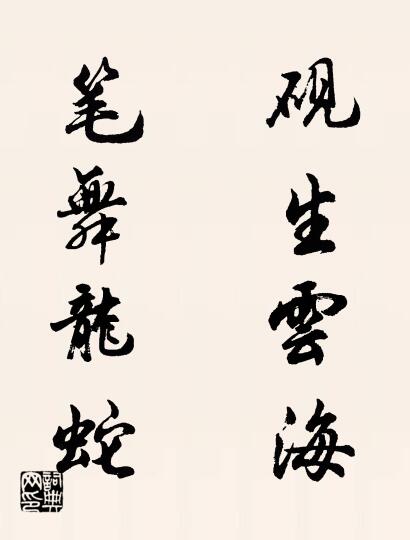 砚生雲海
笔舞龍蛇
詞典网